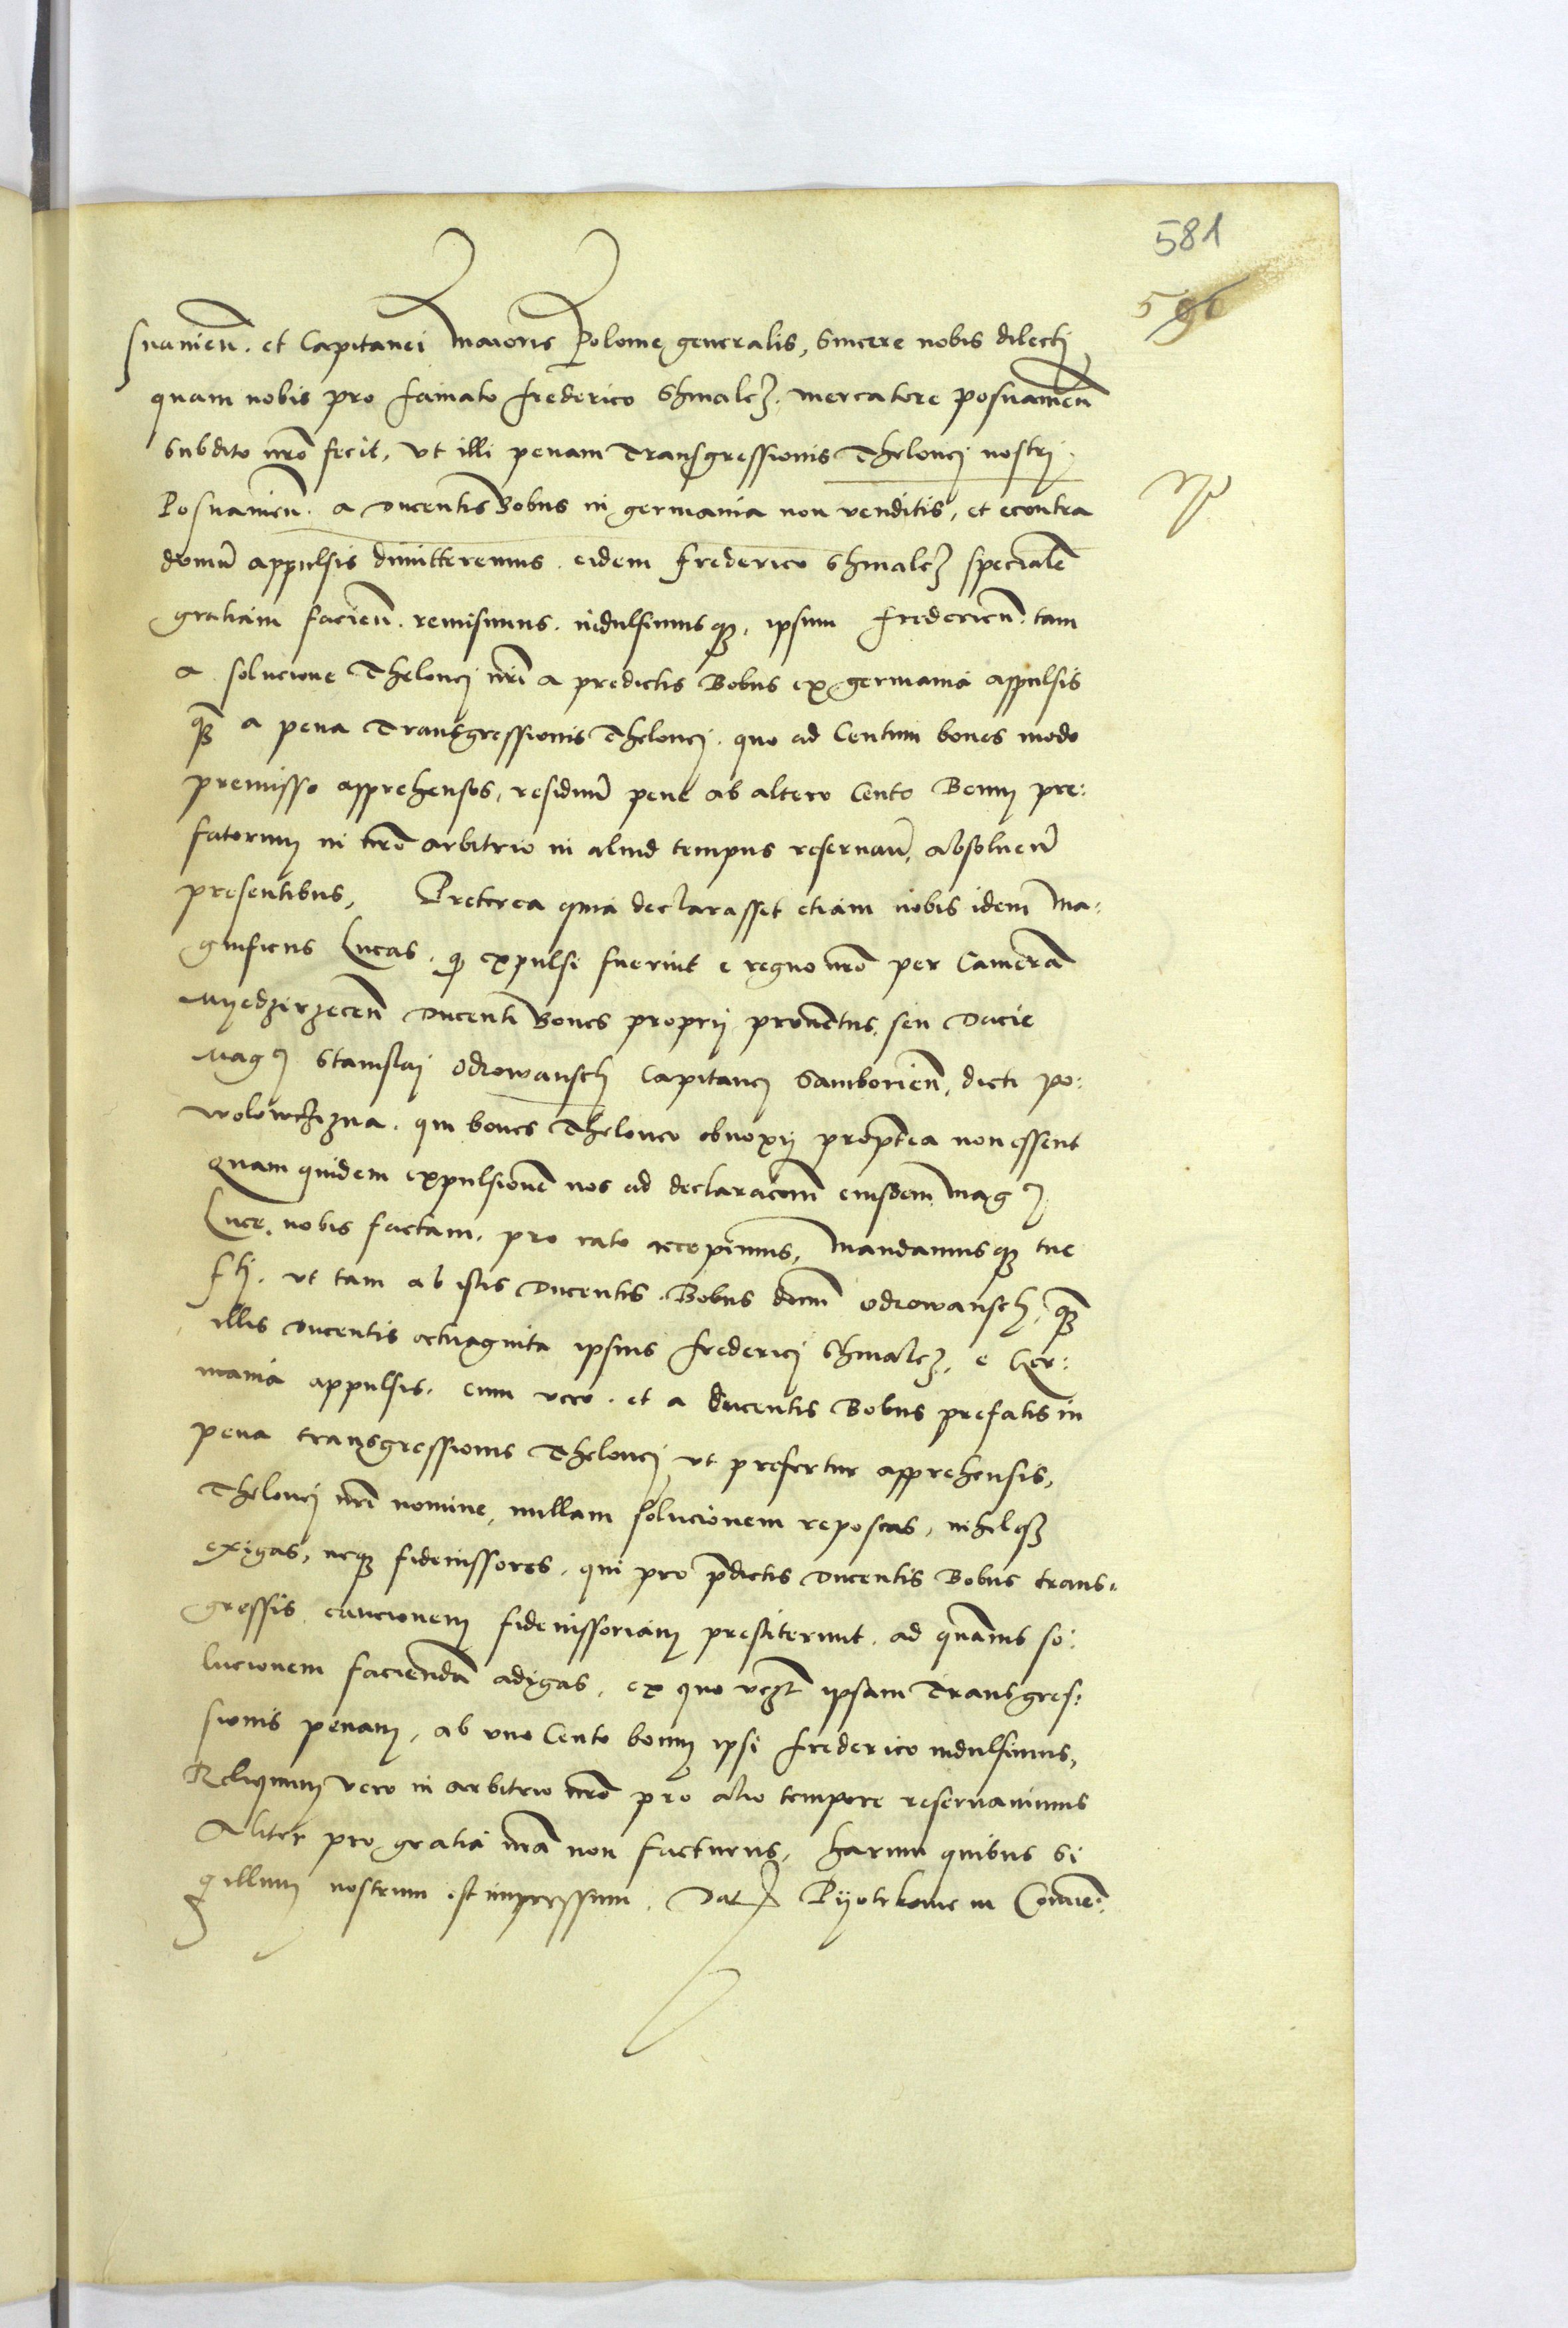 581
596
snanien̄. et Capitanei Maioris Polonie generalis, sincere nobis dilecti
quam nobis pro famato Frederico Shmalcz. mercatore posnanien̄
subdito nr̄o fecit, ut illi penam Transgressionis Thelonej nostrj.
Posnanien̄. a Ducentis Bobus in germania non venditis, et econtra
domū appulsis dimitteremus. eidem Frederico Shmalcz specialē
gratiam facien̄. remisimus. indulsimusqz, ipsum Fredericū. tam
a solucione Thelonej nr̄i a predictis Bobus ex germania appulsis
qz̄ a pena Transgressionis Thelonej. quo ad Centum boues modo
premisso apprehensos, residuū pene ab altero Cento Boum pre:
fatorum in nr̄o arbitrio in aliud tempus reseruan̄, absoluen̄
presentibus, Preterea quia declarasset etiam nobis idem Ma:
gnificus Lucas. qz expulsi fuerint e regno nr̄o per Camerā
Myedzirzecen̄ Ducenti Boues proprij prouētus. seu Dacie
Magci Stanislaj Odrowansch Capitanej Samborien̄, dicti po:
wolowczizna. qui boues Theloneo obnoxij propterea non essent
Quam quidem expulsionē nos ad declaracōem eiusdem Magci
Luce. nobis factam. pro rato accepimus, Mandamusqz tue
fti. ut tam ab istis Ducentis. Bobus dicti Odrowansch, qz̄
illis Ducentis octuaginta ipsius Frederici Shmalcz. e Ger:
mania appulsis. cum vero. et a ducentis Bobus prefatis in
pena transgressionis Thelonej ut prefertur apprehensis,
Thelonej nr̄i nomine, nullam solucionem reposcas, nihilqz
exigas, neqz fideiussores, qui pro p̄dictis Ducentis Bobus trans:
gressis caucionem fideiussoriam prestiterunt. ad quāuis so:
lucionem faciendā adigas, ex quo ipsam Transgres:
sionis penam, ab uno Cento boum ipsi Frederico indulsimus,
Reliquum vero in arbitrio nr̄o pro alio tempore reseruauimus
Aliter pro gratia nr̄a non facturus, harum quibus Si
gillum nostrum est impressum. Dat Pyotrkouie in Conuen: